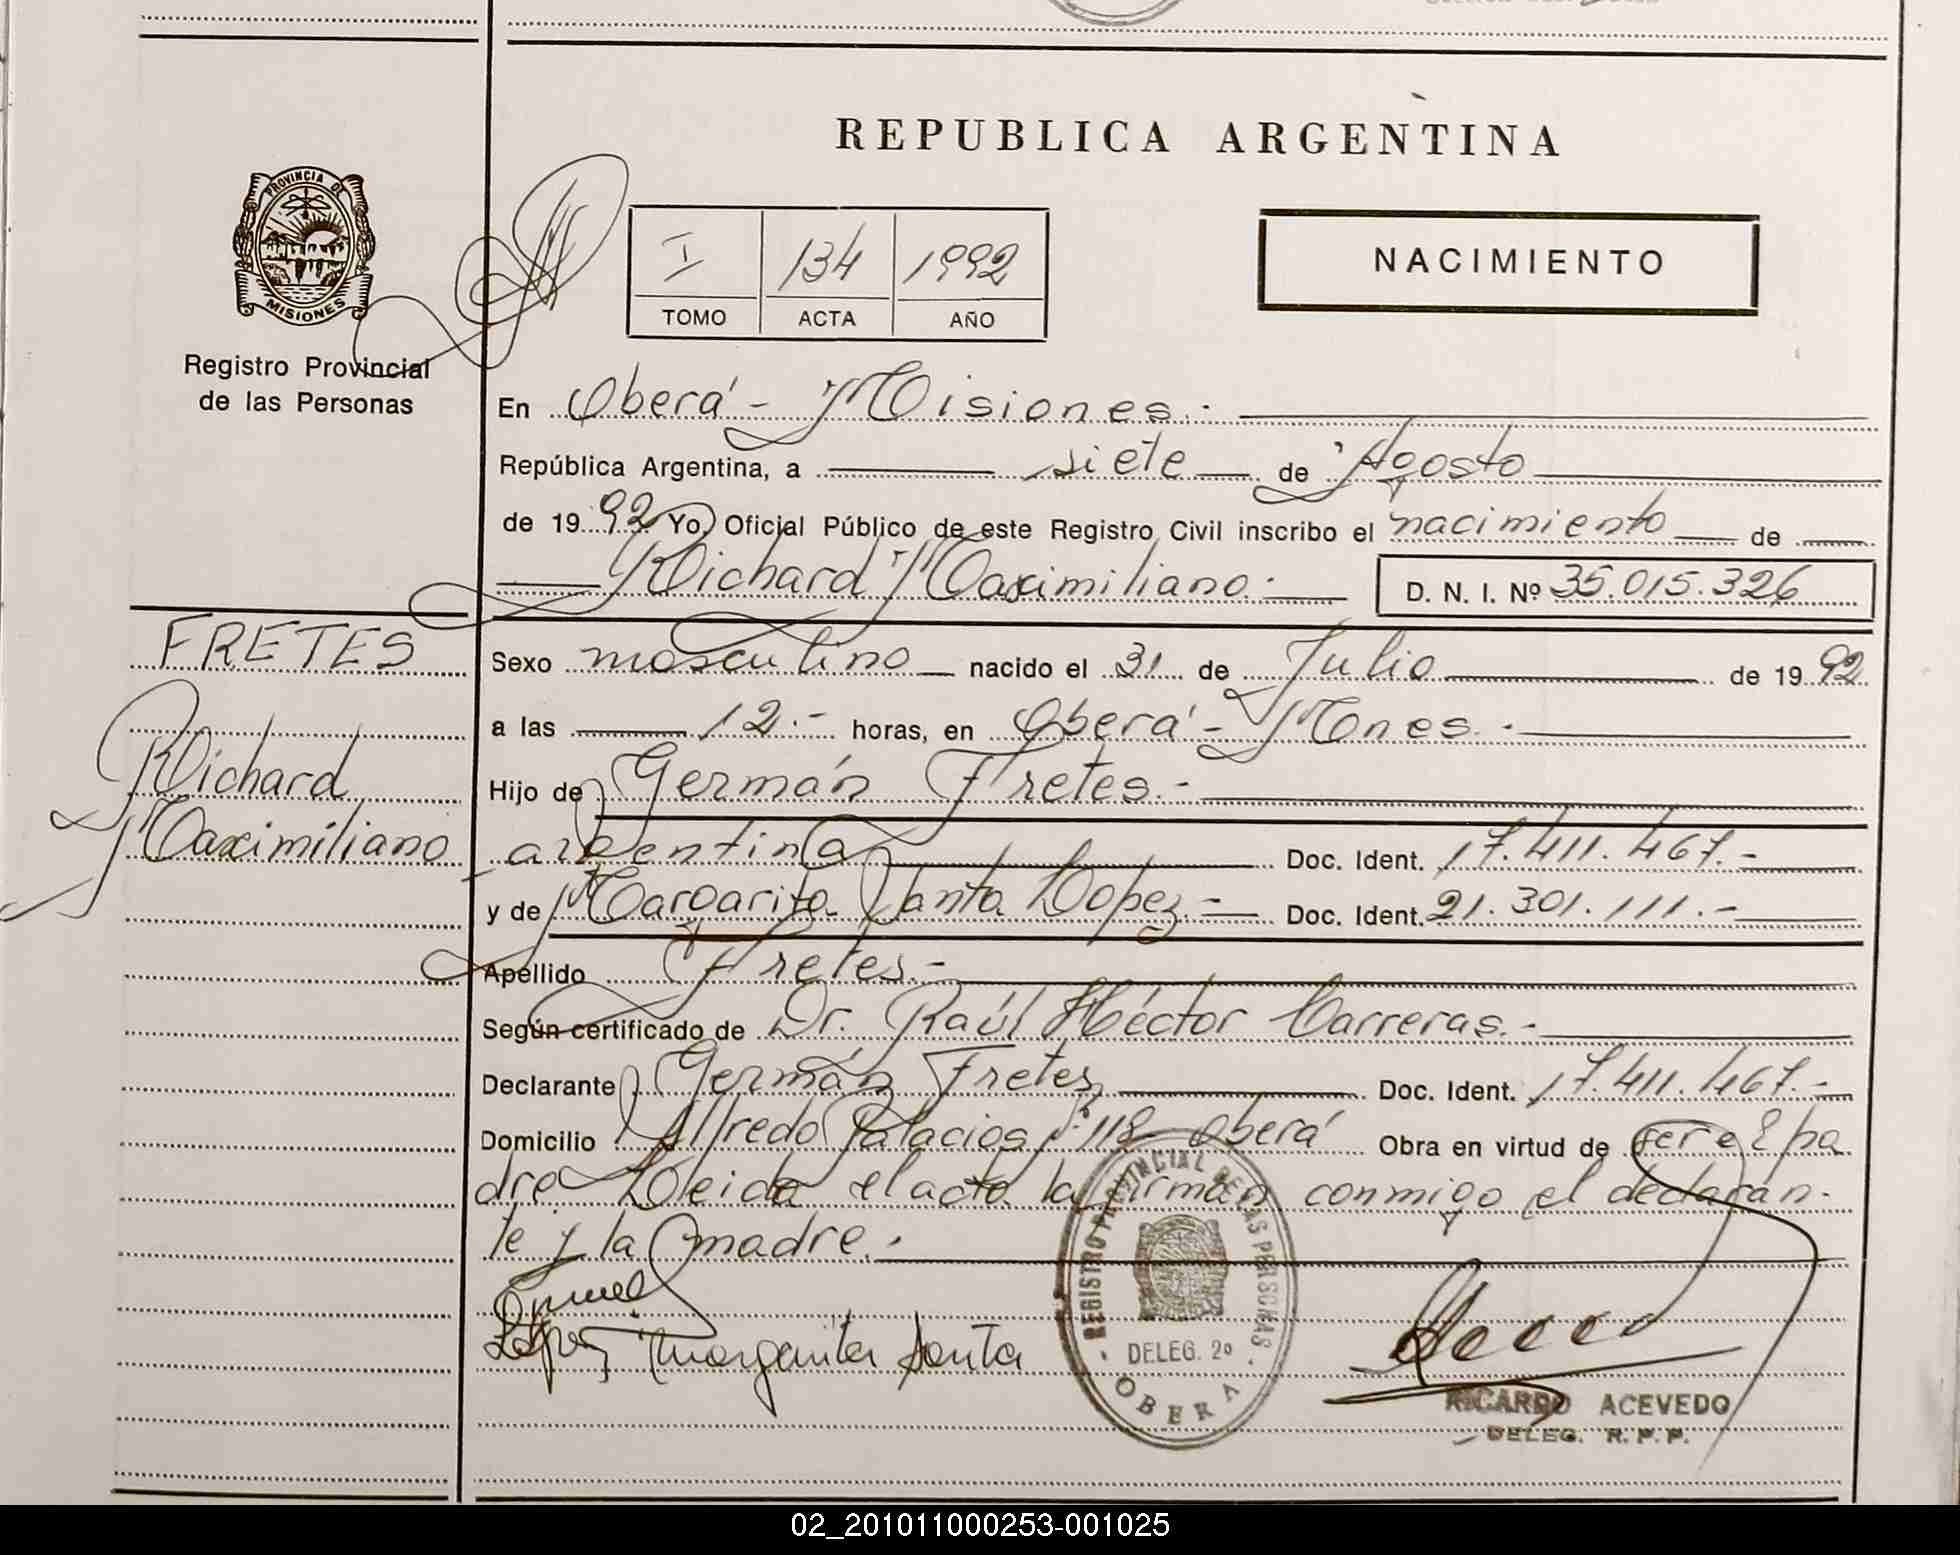 REPUBLICA ARGENTINA
PROVINCIA DE
MISIONES
Registro Provincial
de las Personas
I 134 1992
TOMO ACTA AÑO
NACIMIENTO
En Oberá - Misiones.-
República Argentina, a siete de Agosto
de 1992 Yo, Oficial Público de este Registro Civil inscribo el nacimiento de
Richard Maximiliano.- D. N. I. Nº 35.015.326
FRETES
Richard
Maximiliano
Sexo masculino nacido el 31 de Julio de 1992
a las 12.- horas, en Oberá - Mones.-
Hijo de Germán Fretes.-
argentina Doc. Ident. 17.411.467.-
y de Margarita Santa Lopez.- Doc. Ident. 21.301.111.-
Apellido Fretes.-
Según certificado de Dr. Raúl Héctor Carreras.-
Declarante Germán Fretes Doc. Ident. 17.411.467.-
Domicilio Alfredo Palacios 118 Oberá Obra en virtud de ser el pa
dre Leida el acta la firman conmigo el declaran-
te y la madre.-
López Margarita Santa
REGISTRO PROVINCIAL DE LAS PERSONAS
DELEG. 2º
OBERA
RICARDO ACEVEDO
DELEG. R. P. P.
02_201011000253-001025